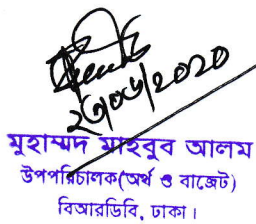 ২৩/০৬/২০২০
মুহাম্মদ মাহবুব আলম
উপপরিচালক(অর্থ ও বাজেট)
বিআরডিবি, ঢাকা।